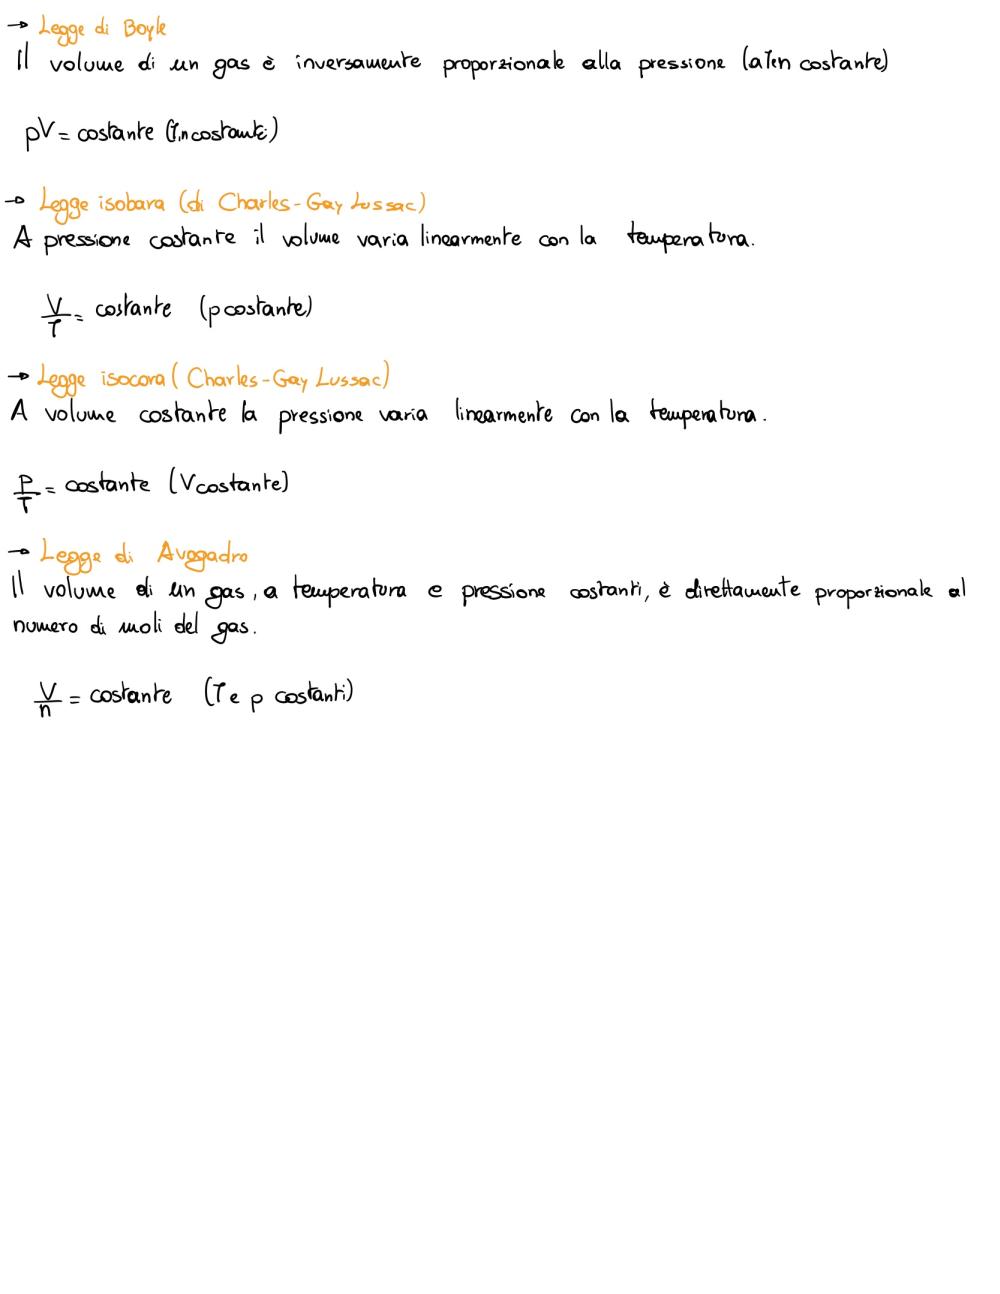 → Legge di Boyle
Il volume di un gas è inversamente proporzionale alla pressione (a T e n costante)
pV = costante (T, n costanti)
→ Legge isobara (di Charles-Gay Lussac)
A pressione costante il volume varia linearmente con la temperatura.
V/T = costante (p costante)
→ Legge isocora (Charles-Gay Lussac)
A volume costante la pressione varia linearmente con la temperatura.
P/T = costante (V costante)
→ Legge di Avogadro
Il volume di un gas, a temperatura e pressione costanti, è direttamente proporzionale al
numero di moli del gas.
V/n = costante (T e p costanti)